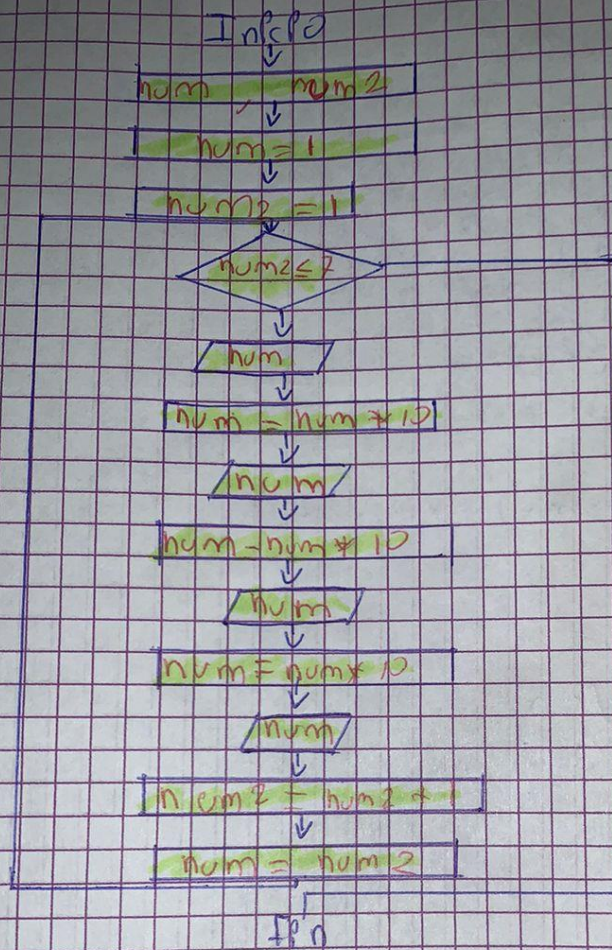 Inicio
num , num2
num = 1
num2 = 1
num2 ≤ 7
num
num = num * 10
num
num = num * 10
num
num = num * 10
num
num2 = num2 + 1
num = num2
Fin